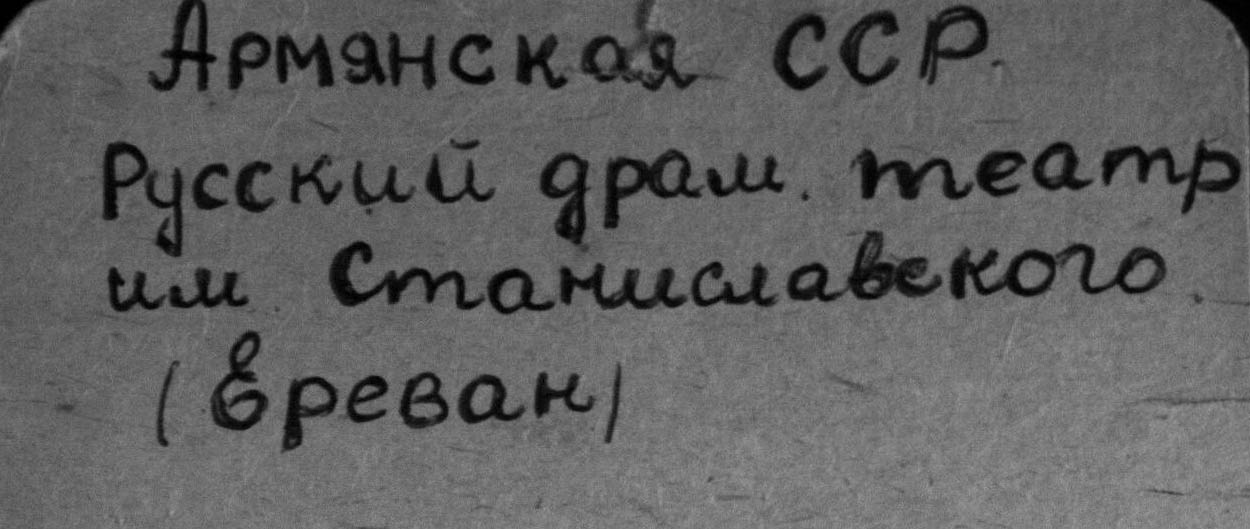 Армянская ССР.
Русский драм. театр
им Станиславского.
(Ереван)